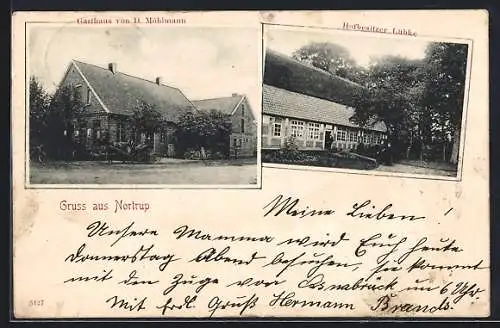 Gasthaus von D. Mühlmann
Hofbesitzer Lübke
Gruss aus Nortrup
Meine Lieben !
Unsere Mamma wird Euch heute
Donnerstag Abend besuchen, sie kommt
mit dem Zuge von Osnabrück um 6 Uhr
Mit frdl. Gruß Hermann Brands.
5127